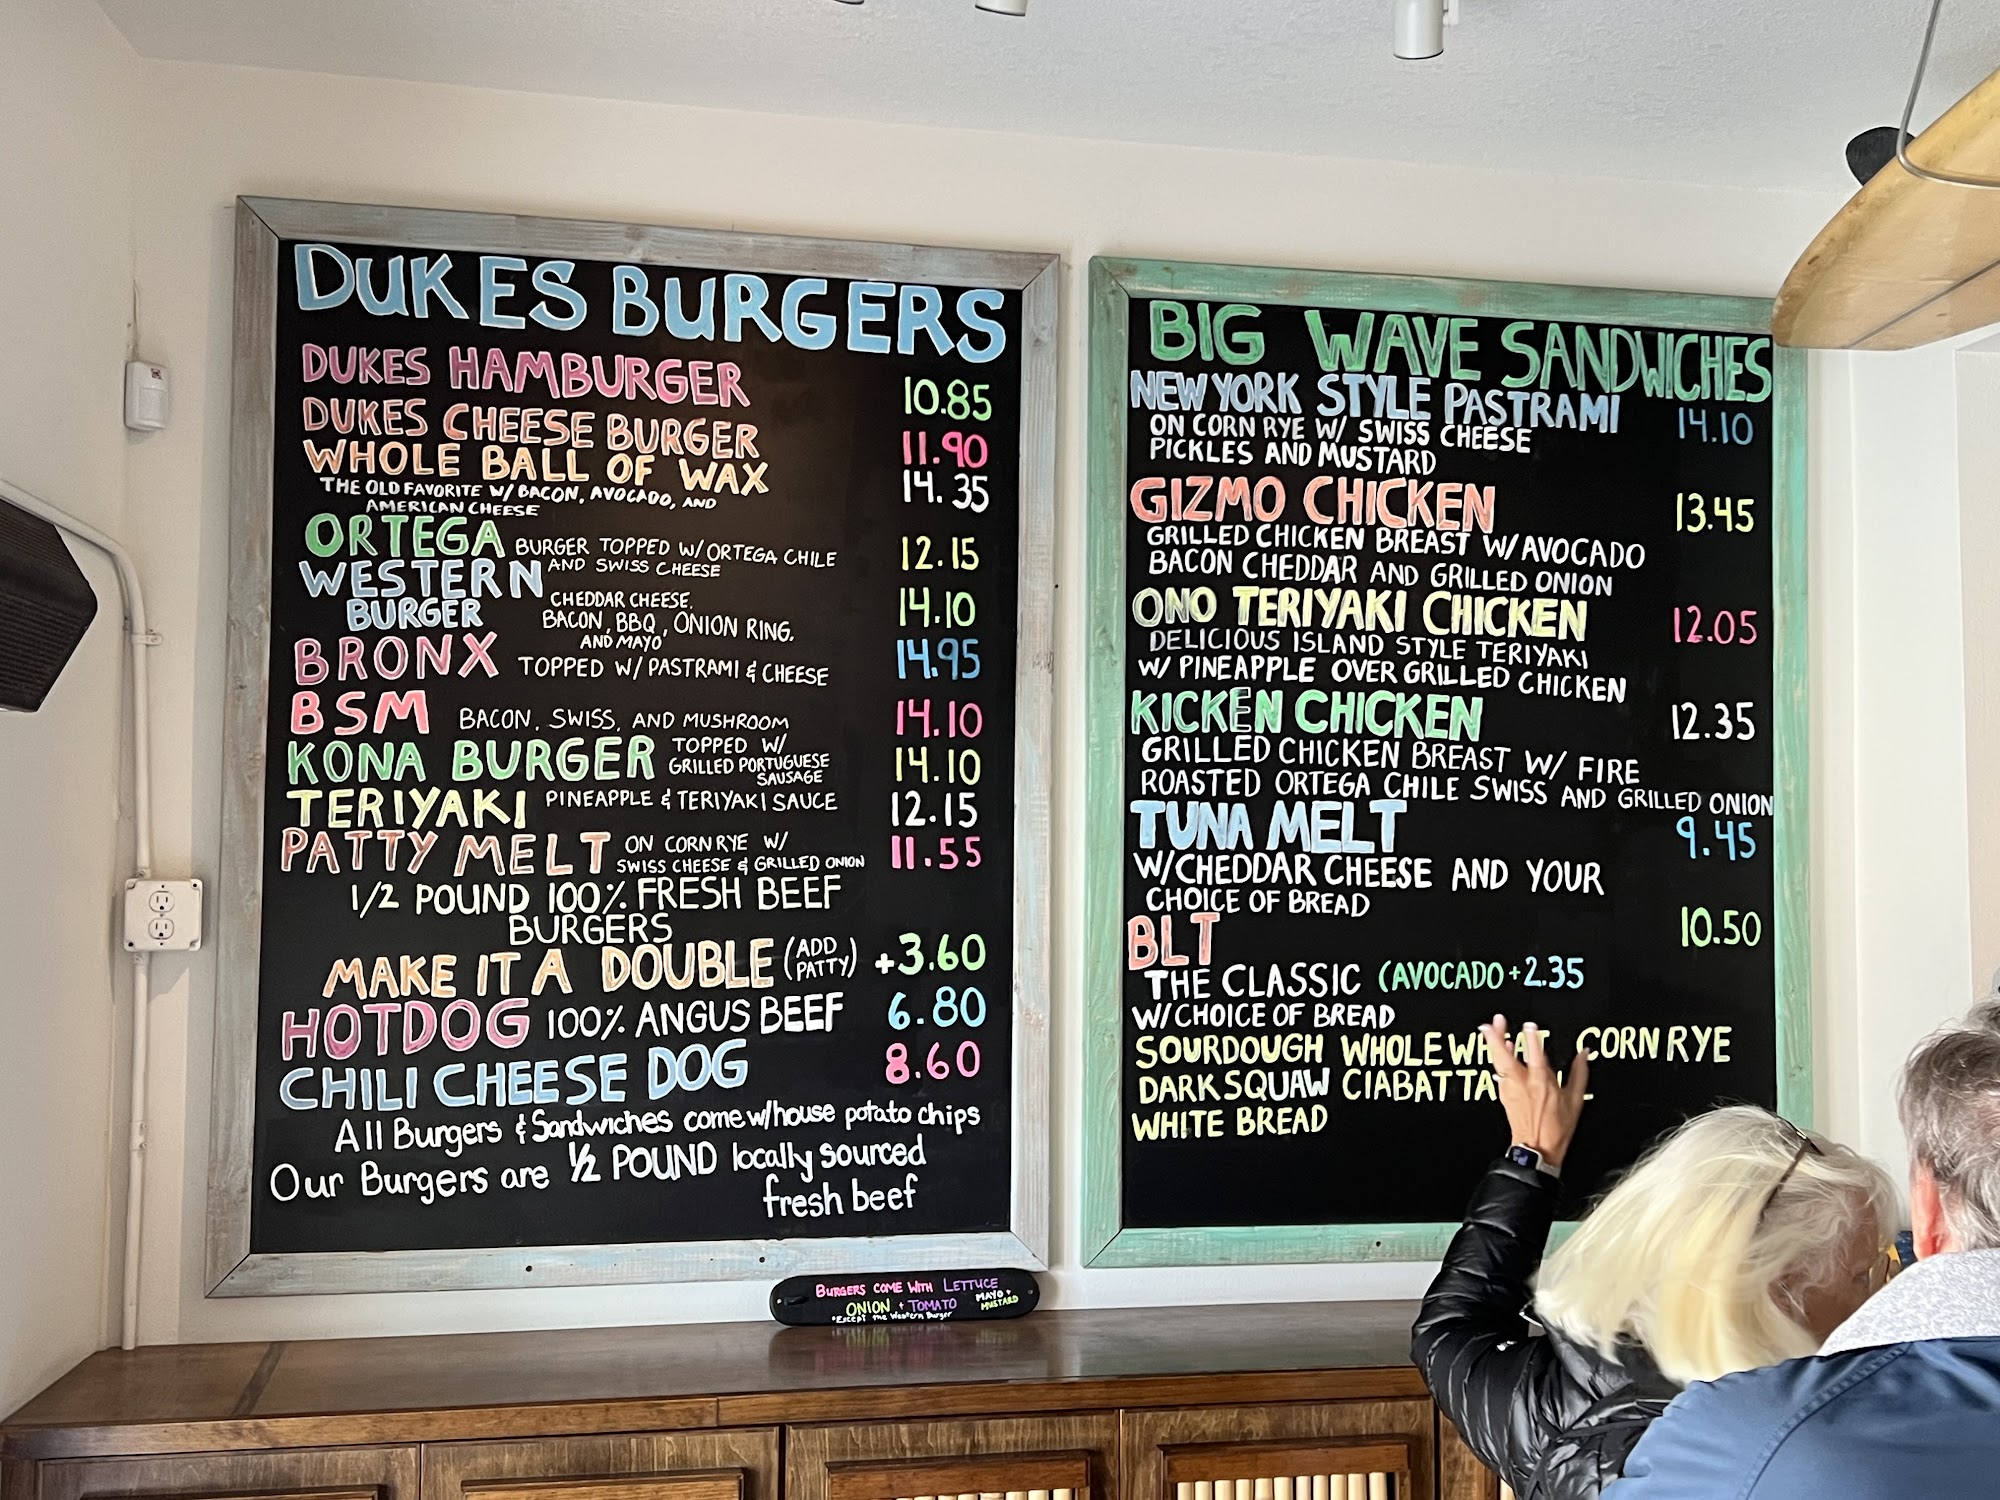 DUKES BURGERS
DUKES HAMBURGER 10.85
DUKES CHEESE BURGER 11.90
WHOLE BALL OF WAX 14.35
THE OLD FAVORITE W/ BACON, AVOCADO, AND
AMERICAN CHEESE
ORTEGA BURGER TOPPED W/ ORTEGA CHILE 12.15
AND SWISS CHEESE
WESTERN
BURGER CHEDDAR CHEESE, 14.10
BACON, BBQ, ONION RING,
AND MAYO
BRONX TOPPED W/ PASTRAMI & CHEESE 14.95
BSM BACON, SWISS, AND MUSHROOM 14.10
KONA BURGER TOPPED W/ 14.10
GRILLED PORTUGUESE
SAUSAGE
TERIYAKI PINEAPPLE & TERIYAKI SAUCE 12.15
PATTY MELT ON CORN RYE W/ 11.55
SWISS CHEESE & GRILLED ONION
1/2 POUND 100% FRESH BEEF
BURGERS
MAKE IT A DOUBLE (ADD +3.60
PATTY)
HOTDOG 100% ANGUS BEEF 6.80
CHILI CHEESE DOG 8.60
All Burgers & Sandwiches come w/house potato chips
Our Burgers are 1/2 POUND locally sourced
fresh beef
BURGERS COME WITH LETTUCE
ONION + TOMATO MAYO +
MUSTARD
*Except the Western Burger
BIG WAVE SANDWICHES
NEW YORK STYLE PASTRAMI 14.10
ON CORN RYE W/ SWISS CHEESE
PICKLES AND MUSTARD
GIZMO CHICKEN 13.45
GRILLED CHICKEN BREAST W/ AVOCADO
BACON CHEDDAR AND GRILLED ONION
ONO TERIYAKI CHICKEN 12.05
DELICIOUS ISLAND STYLE TERIYAKI
W/ PINEAPPLE OVER GRILLED CHICKEN
KICKEN CHICKEN 12.35
GRILLED CHICKEN BREAST W/ FIRE
ROASTED ORTEGA CHILE SWISS AND GRILLED ONION
TUNA MELT 9.45
W/CHEDDAR CHEESE AND YOUR
CHOICE OF BREAD
BLT 10.50
THE CLASSIC (AVOCADO +2.35
W/CHOICE OF BREAD
SOURDOUGH WHOLE WHEAT CORN RYE
DARK SQUAW CIABATTA
WHITE BREAD